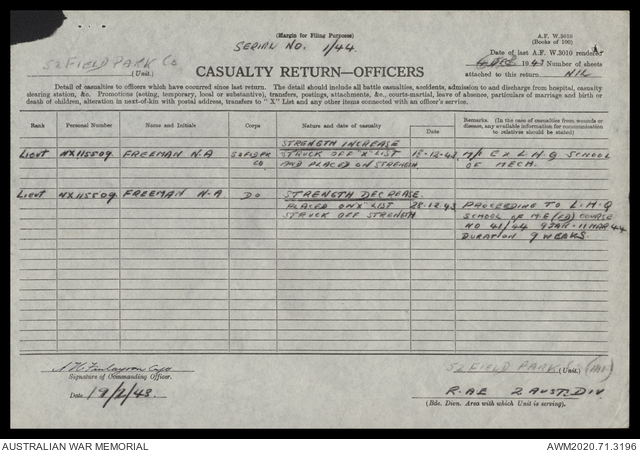 (Margin for Filing Purposes)
A.F. W.3010
(Books of 100)
SERIAL NO. 1/44
Date of last A.F. W.3010 rendered
1943 Number of sheets
attached to this return NIL
52 FIELD PARK Co
(Unit.)
CASUALTY RETURN—OFFICERS
Detail of casualties to officers which have occurred since last return. The detail should include all battle casualties, accidents, admission to and discharge from hospital, casualty
clearing station, &c. Promotions (acting, temporary, local or substantive), transfers, postings, attachments, &c., courts-martial, leave of absence, particulars of marriage and birth or
death of children, alteration in next-of-kin with postal address, transfers to "X" List and any other items connected with an officer's service.
Rank Personal Number Name and Initials Corps Nature and date of casualty Date Remarks. (In the case of casualties from wounds or disease, any available information for communication to relatives should be stated)
STRENGTH INCREASE
Lieut NX115509 FREEMAN N.A 52 FD PK STRUCK OFF "X" LIST 15-12-43 M/I Ex L.H.Q SCHOOL
CO AND PLACED ON STRENGTH OF MECH.
Lieut NX115509 FREEMAN N.A DO STRENGTH DECREASE.
PLACED ON "X" LIST 28.12.43 PROCEEDING TO L.H.Q
STRUCK OFF STRENGTH SCHOOL OF M.E (FD) COURSE
NO 41/44 9 JAN - 11 MAR 44
DURATION 9 WEAKS.
Signature of Commanding Officer.
Date 19/1/43.
52 FIELD PARK (Unit.)
R.AE 2 AUST. DIV
(Bde. Divn. Area with which Unit is serving).
AUSTRALIAN WAR MEMORIAL
AWM2020.71.3196